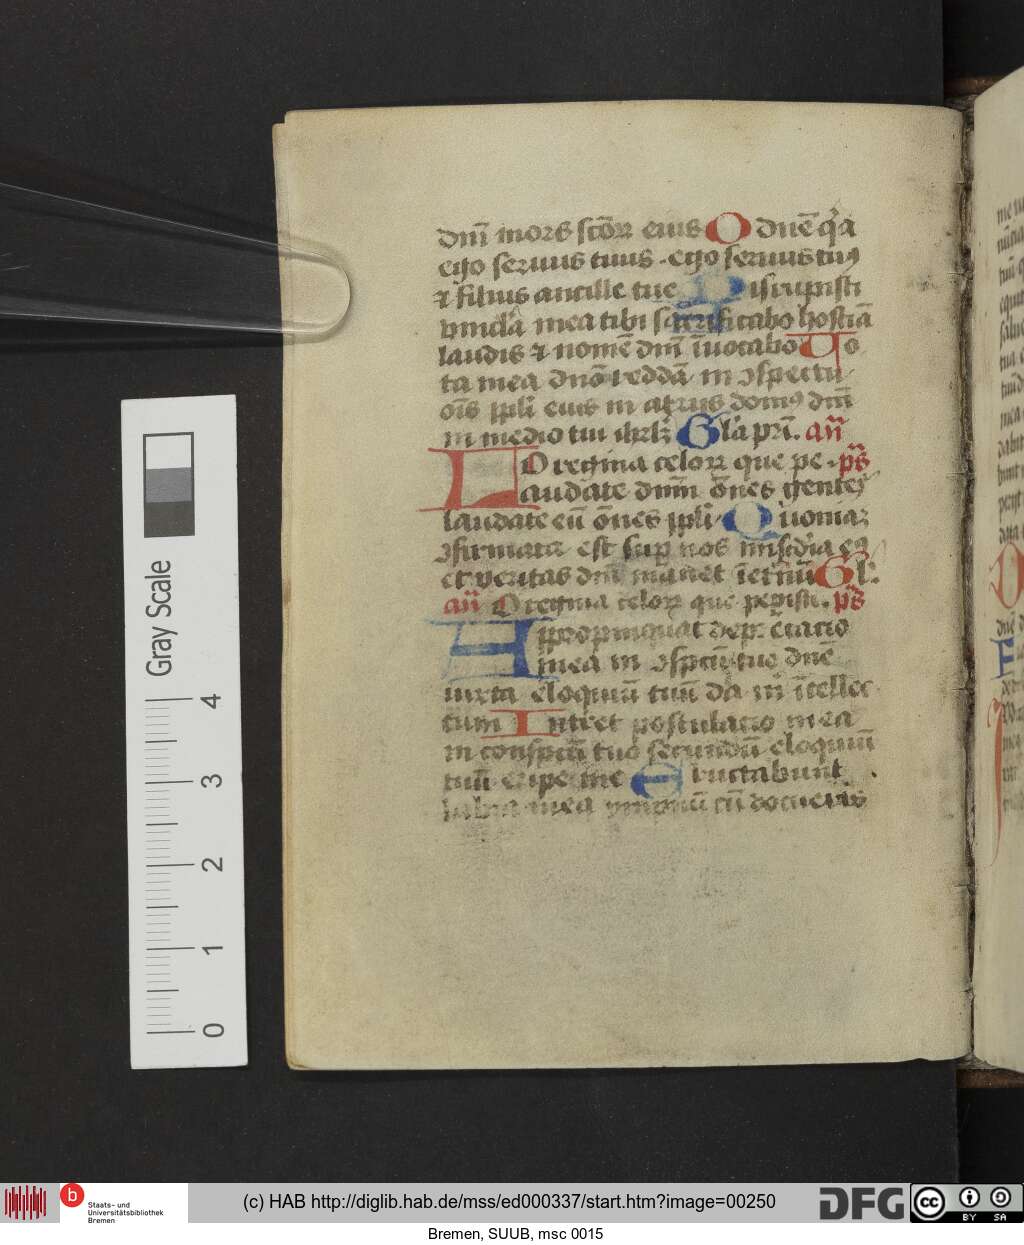 dnı̄ mors sctōꝝ eius O dnē q̇a
ego seruus tuus · ego seruus tuꝰ
⁊ filius ancille tue Disrupisti
vincl̄a mea tibi sacrificabo hostiā
laudis ⁊ nomē dnı̄ īuocabo Uo
ta mea dnō reddā in ɔspectu
oīs ppl̄i eius in atriis domꝰ dnı̄
in medio tui ihrl̄ꝫ Gl̄a pr̄i. an̄
O regina celoꝝ que pe · ps̄
Laudate dnm̄ ōnes gentes
laudate eū ōnes ppl̄i Quoniaꝫ
ɔfirmata est sup nos mis̄cdia eꝰ
et veritas dnı̄ manet īetnū Gl̄.
an̄ O regina celoꝝ que pepisti. ps̄
Appropinquat dep̄cacio
mea in ɔspctū tuo dnē
iuxta eloquiū tuū da m̄ ītellec
tum Intret postulacio mea
in conspctū tuo secundū eloquiū
tuū eripe me Eructabunt
labia mea ymnū cū docueris
Gray Scale
4
3
2
1
0
b
Staats- und
Universitätsbibliothek
Bremen
(c) HAB http://diglib.hab.de/mss/ed000337/start.htm?image=00250
DFG
cc BY SA
Bremen, SUUB, msc 0015